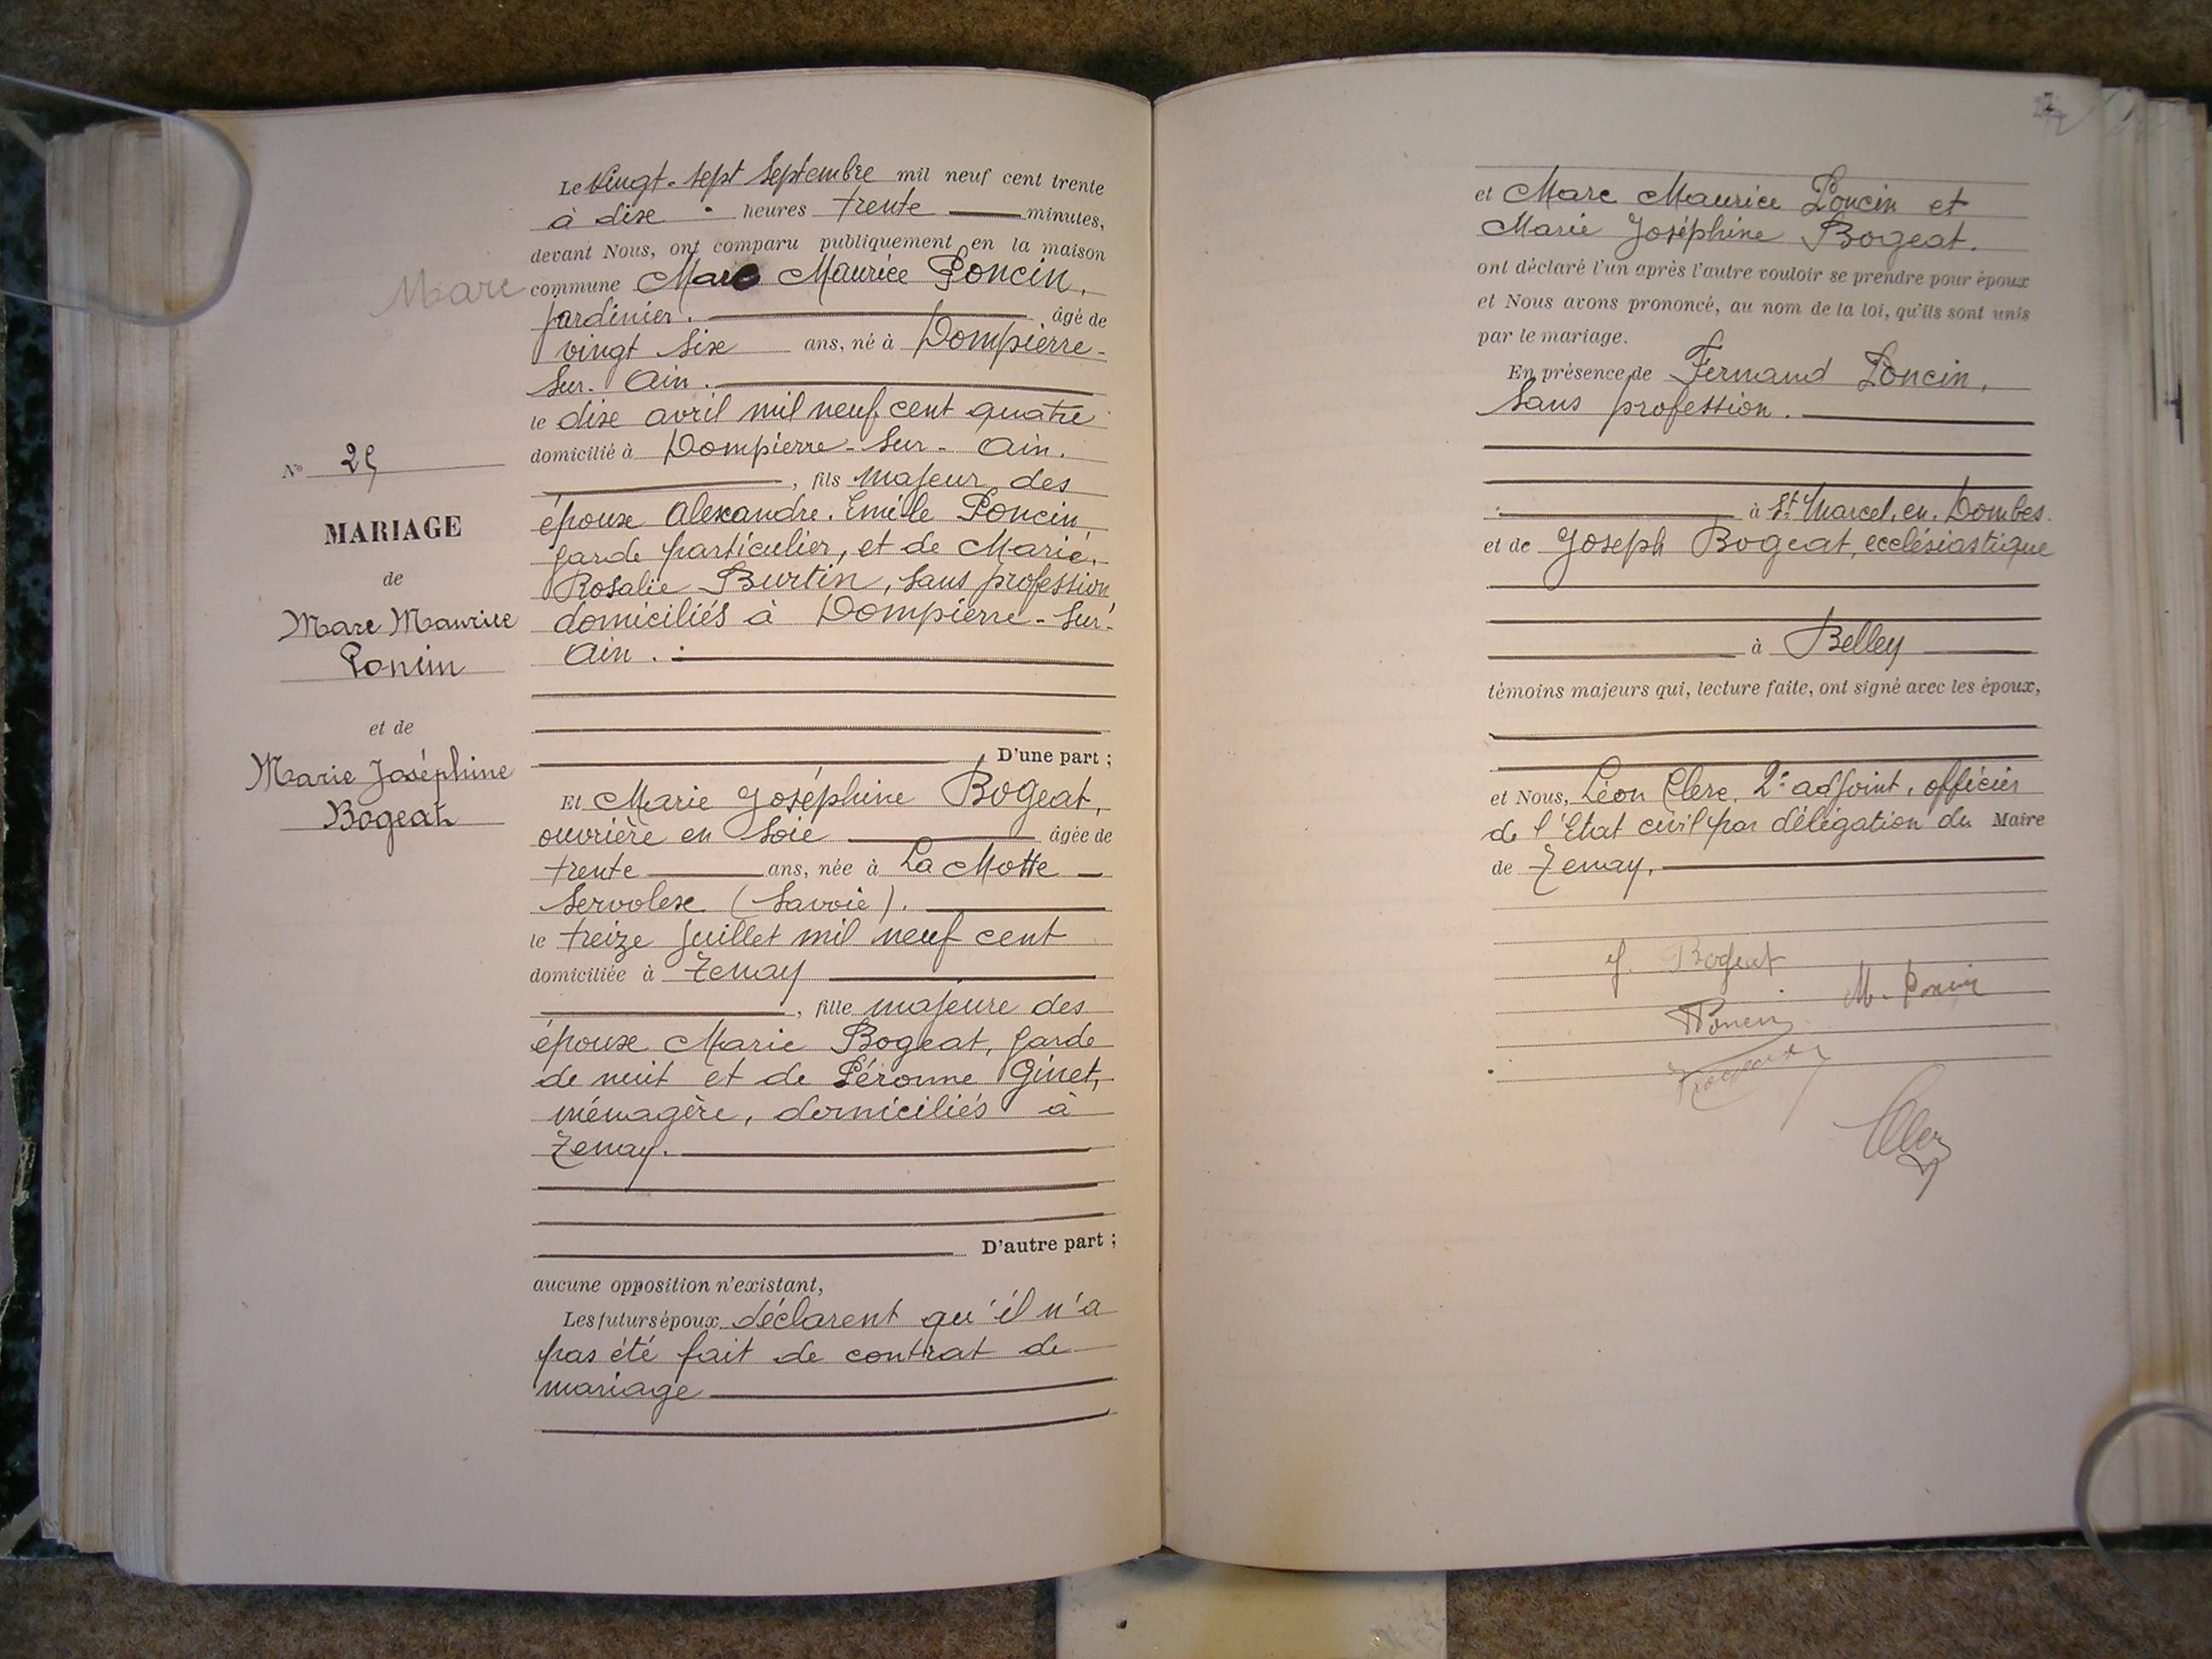 Marc
N° 25
MARIAGE
de
Marc Maurice
Poncin
et de
Marie Joséphine
Bogeat
Le vingt-sept septembre mil neuf cent trente
à dix heures trente minutes,
devant Nous, ont comparu publiquement en la maison
commune Marc Maurice Poncin,
jardinier. âgé de
vingt six ans, né à Dompierre-
sur-Ain.
le dix avril mil neuf cent quatre
domicilié à Dompierre-sur-Ain.
, fils majeur des
époux Alexandre-Emile Poncin
garde particulier, et de Marie-
Rosalie Burtin, sans profession
domiciliés à Dompierre-sur-
Ain.
D'une part ;
Et Marie Joséphine Bogeat,
ouvrière en soie âgée de
trente ans, née à La Motte
Servolex (Savoie).
le treize juillet mil neuf cent
domiciliée à Tenay
, fille majeure des
époux Marie Bogeat, garde
de nuit et de Péronne Ginet,
ménagère, domiciliés à
Tenay.
D'autre part ;
aucune opposition n'existant,
Les futurs époux déclarent qu'il n'a
pas été fait de contrat de
mariage
et Marc Maurice Poncin et
Marie Joséphine Bogeat.
ont déclaré l'un après l'autre vouloir se prendre pour époux
et Nous avons prononcé, au nom de la loi, qu'ils sont unis
par le mariage.
En présence de Fernand Poncin,
sans profession.
à St Marcel-en-Dombes.
et de Joseph Bogeat, ecclésiastique
à Belley
témoins majeurs qui, lecture faite, ont signé avec les époux,
et Nous, Léon Clerc, 2e adjoint, officier
de l'Etat civil par délégation du Maire
de Tenay.
J. Bogeat
M. Poncin
Poncin
Clerc